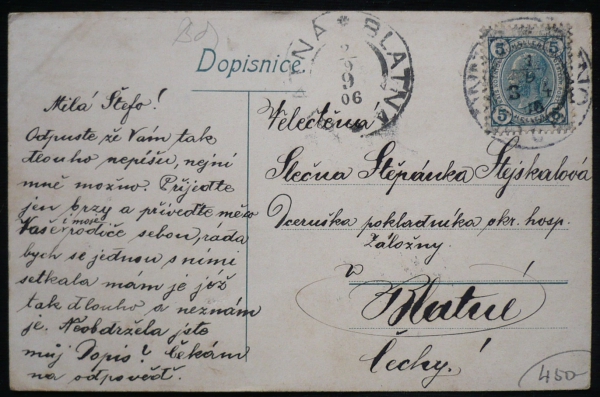 Dopisnice.
BLATNA
BLATNA
2
9
06
5
5
5
5
Milá Štefo!
Odpuste že Vám tak
dlouho nepíšu, nejni
mně možno. Přijeďte
jen brzy a přiveďte
i moje
Vaše rodiče sebou, ráda
bych se jednou s nimi
setkala mám je již
tak dlouho a neznám
je. Neobdržela jste
můj Dopis? Čekám
na odpověď.
Velectěná
Slečna Štěpánka Stejskalová
Dceruška pokladníka okr. hosp.
záložny
v
Blatné
Čechy!
450